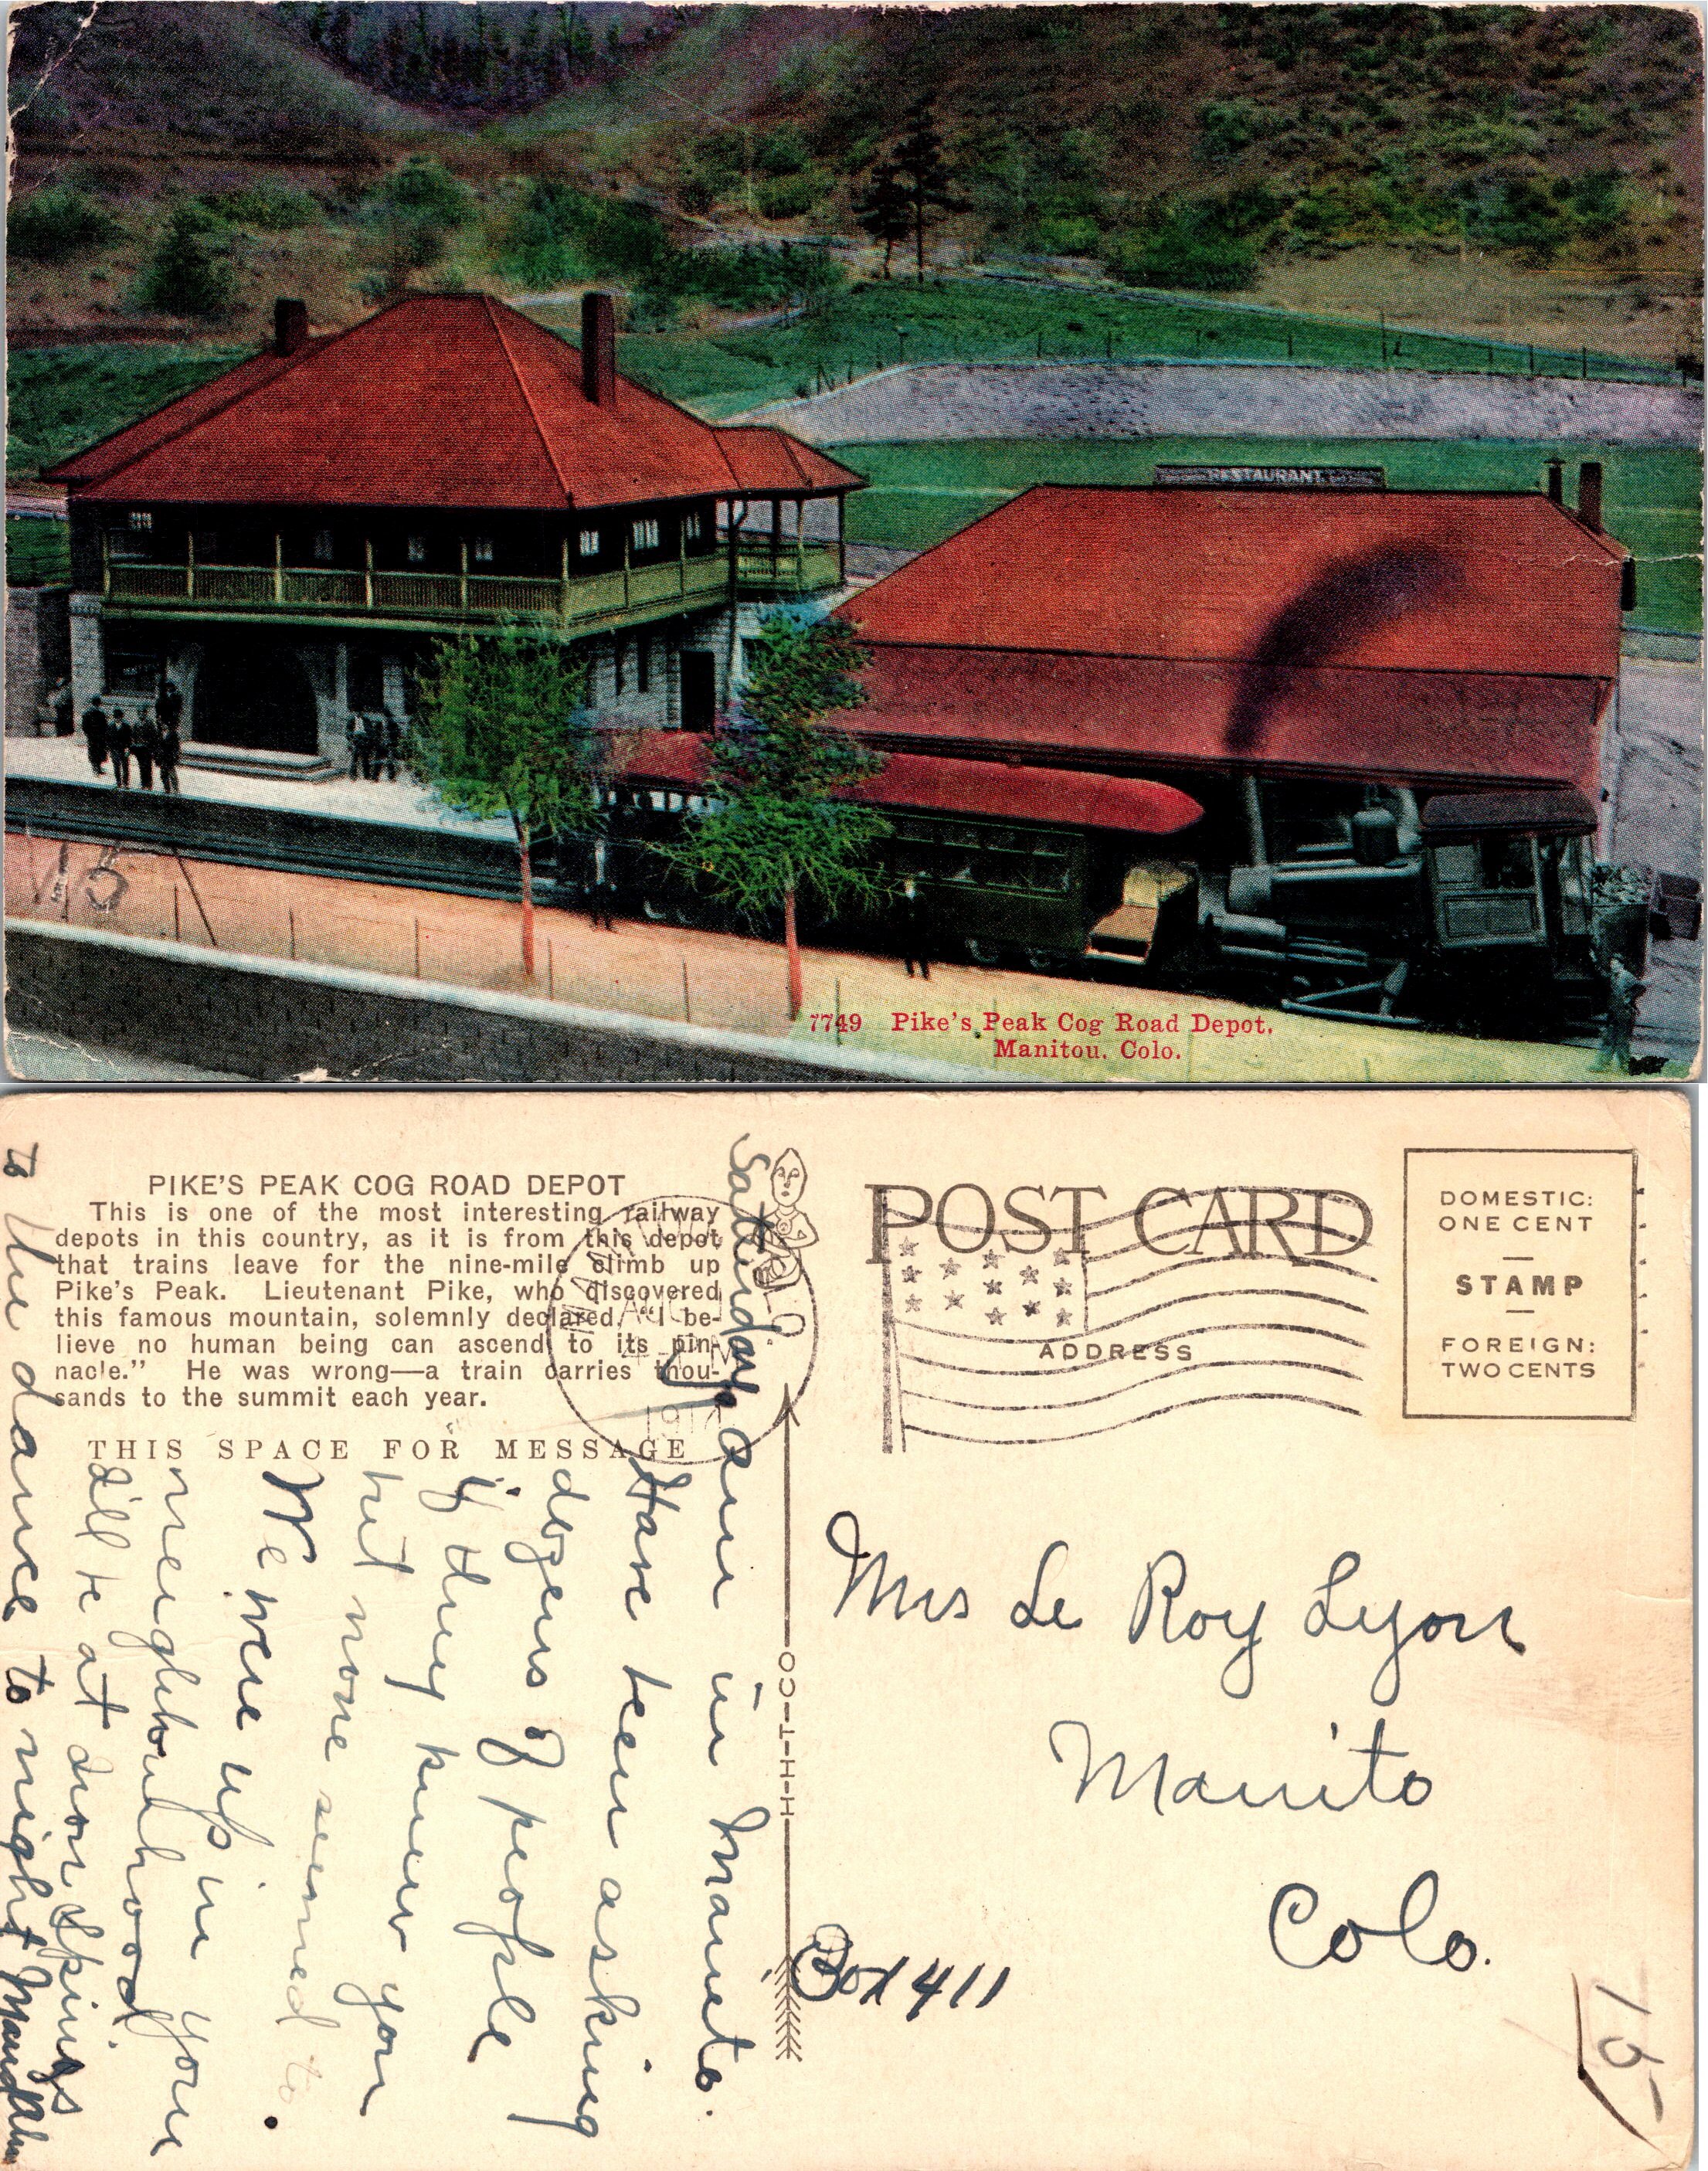 RESTAURANT
15
7749 Pike's Peak Cog Road Depot,
Manitou, Colo.
PIKE'S PEAK COG ROAD DEPOT
This is one of the most interesting railway
depots in this country, as it is from this depot
that trains leave for the nine-mile climb up
Pike's Peak. Lieutenant Pike, who discovered
this famous mountain, solemnly declared, "I be-
lieve no human being can ascend to its pin-
nacle." He was wrong—a train carries thou-
sands to the summit each year.
THIS SPACE FOR MESSAGE
Saturday
am in Manito.
Have been asking
dozens of people
if they knew you
but none seemed to.
We were up in your
neighborhood.
I'll be at don Springs
to the dance to night Maud
H-H-T-CO
POST CARD
ADDRESS
DOMESTIC:
ONE CENT
STAMP
FOREIGN:
TWO CENTS
AUG
191
Mrs Le Roy Lyon
Manito
Colo.
Box 411
15